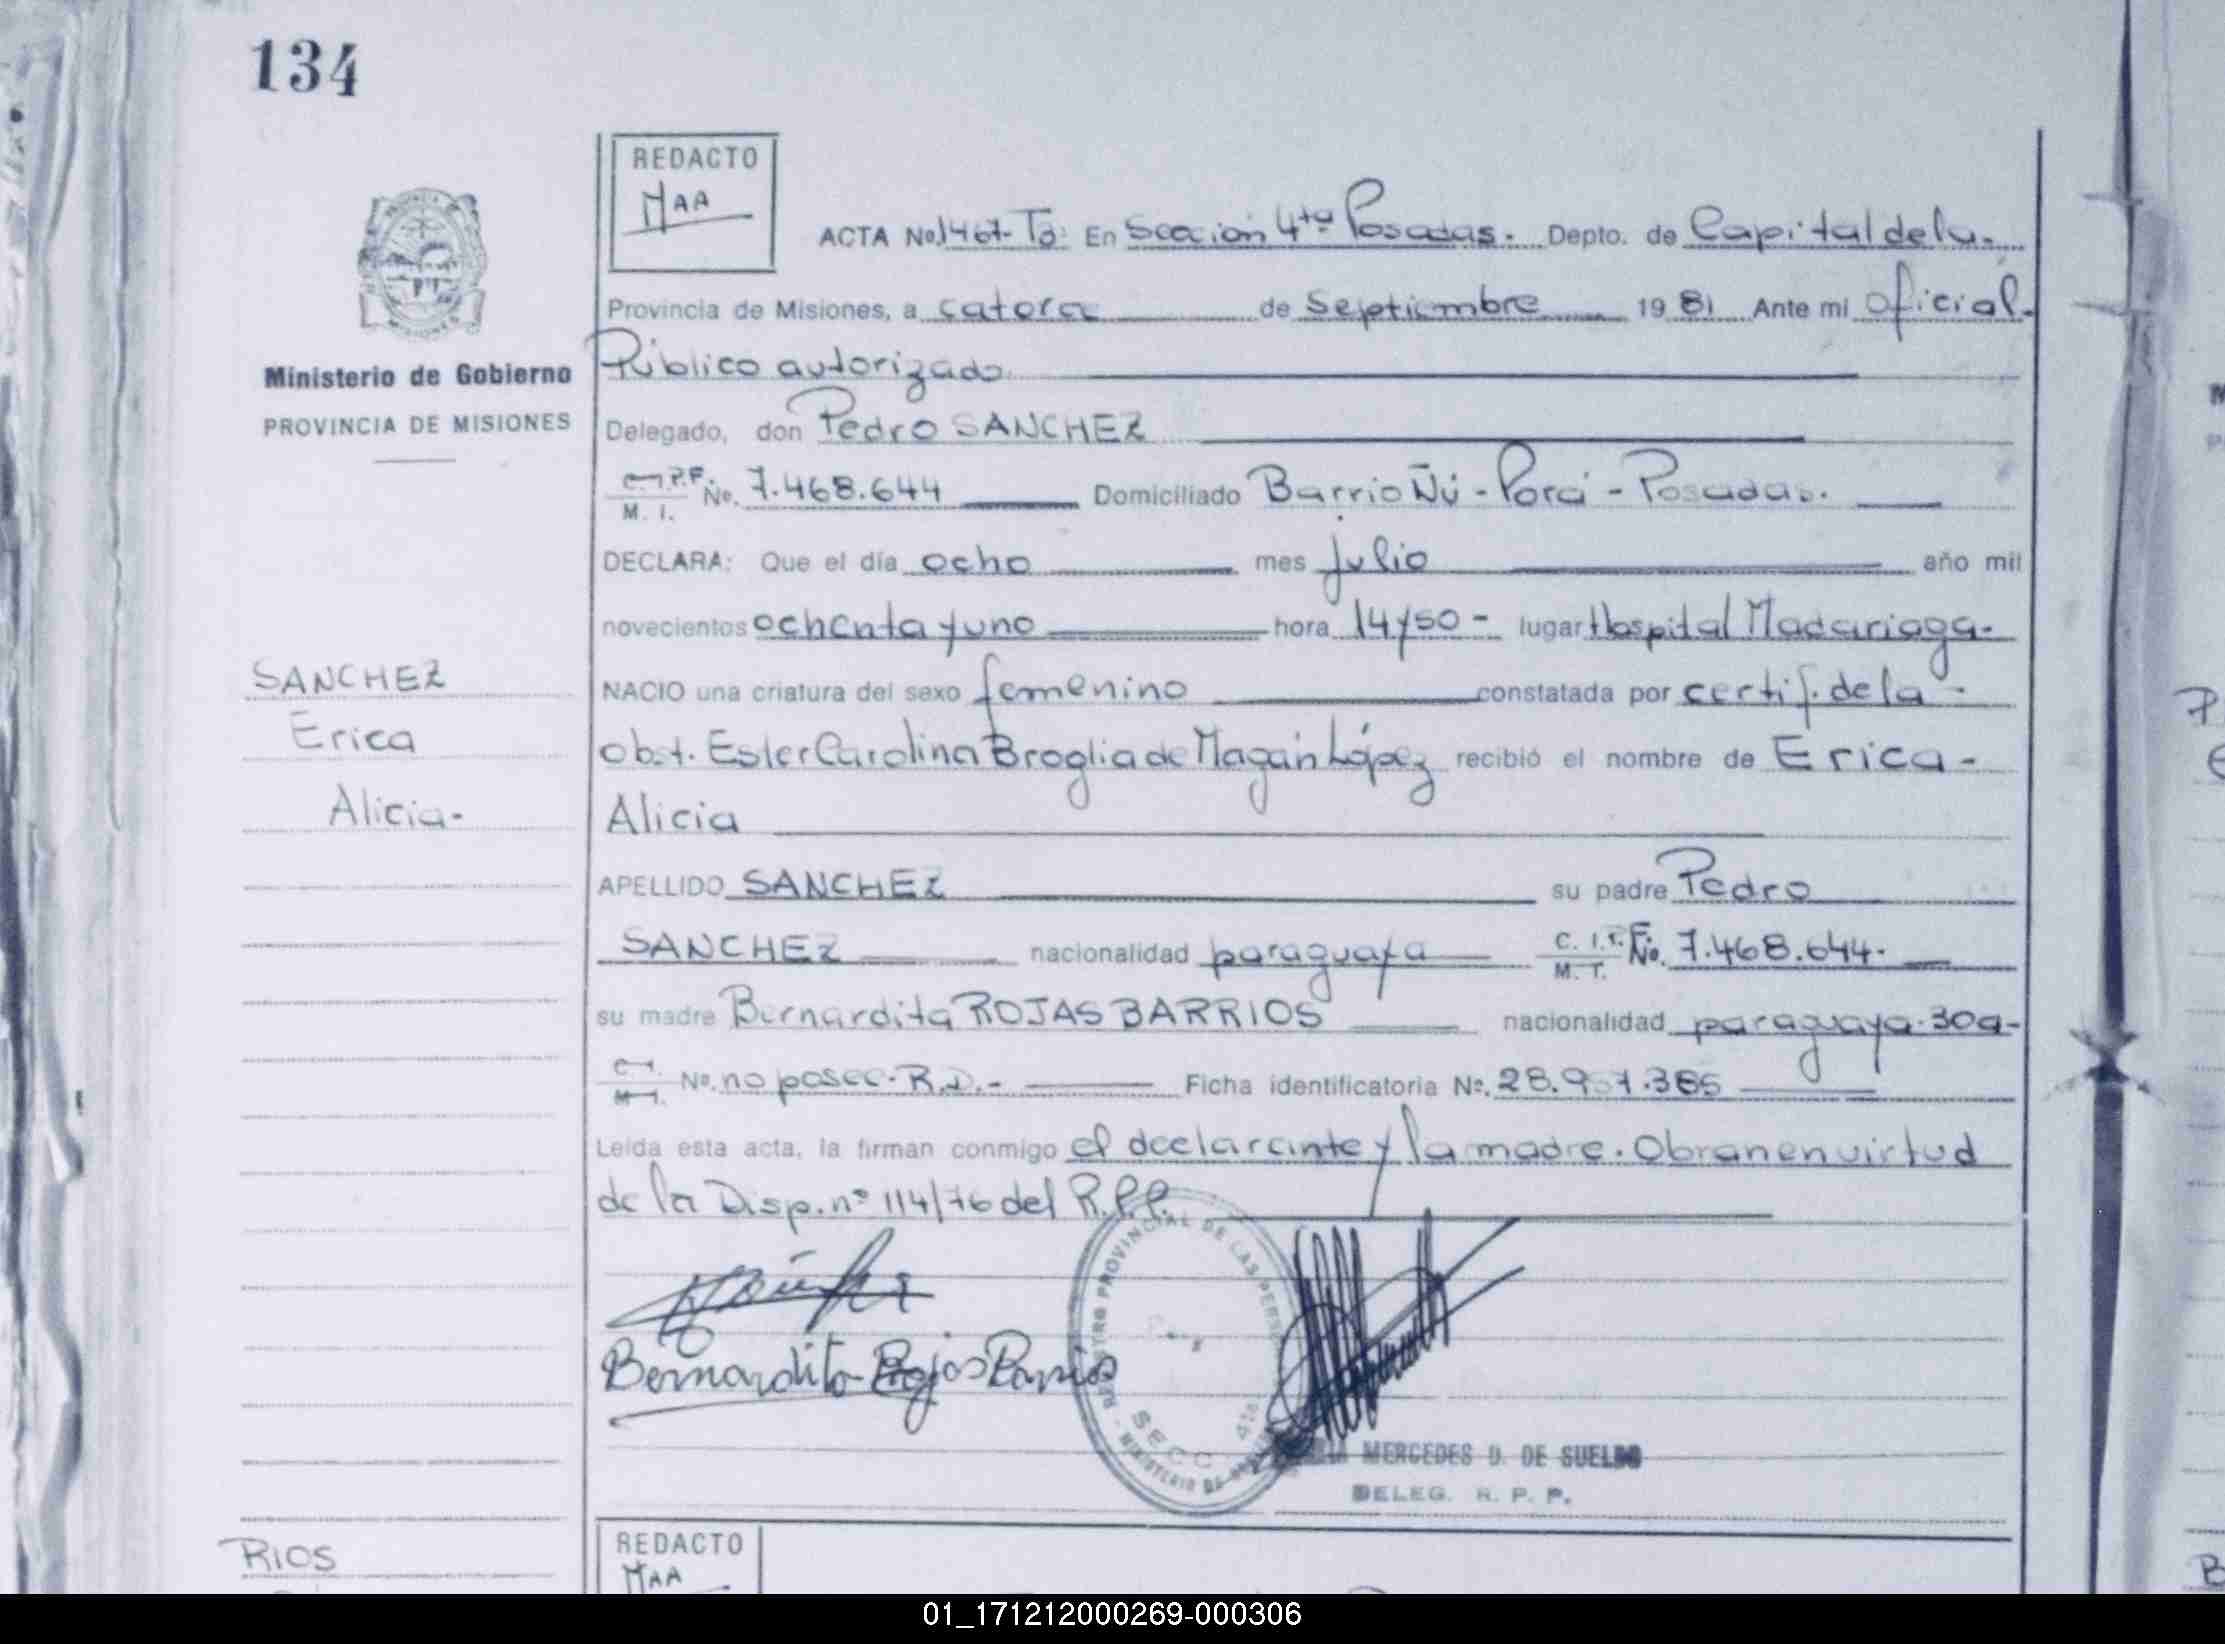 134
REDACTO
MAA
ACTA No 1467- Tº: En Sección 4ta Posadas. Depto. de Capital de la.
Provincia de Misiones, a catorce de Septiembre 1981 Ante mi Oficial.
Público autorizado
Delegado, don Pedro SANCHEZ
C.I.P.F. M. I. No. 7.468.644 Domiciliado Barrio Ñú-Porá - Posadas.
DECLARA: Que el día ocho mes julio año mil
novecientos ochenta y uno hora 14y50 - lugar Hospital Madariaga-
NACIO una criatura del sexo femenino constatada por certif. de la -
obst. Ester Carolina Broglia de Magán López recibió el nombre de Erica-
Alicia
APELLIDO SANCHEZ su padre Pedro
SANCHEZ nacionalidad paraguaya C. I.P.F. M. I. No. 7.468.644.
su madre Bernardita ROJAS BARRIOS nacionalidad paraguaya. 30a-
C. I. M. I. No. no posee. R.D.- Ficha identificatoria No. 28.9 7.385
Leída esta acta, la firman conmigo el declarante y la madre. Obran en virtud
de la Disp. nº 114/76 del R.P.P.
Bernardita Rojas Barrios
REGISTRO PROVINCIAL DE LAS PERS
SECC 4ta
MINISTERIO DE
MERCEDES D. DE SUELDO
DELEG. R. P. P.
Ministerio de Gobierno
PROVINCIA DE MISIONES
SANCHEZ
Erica
Alicia-
RIOS
REDACTO
MAA
01_171212000269-000306